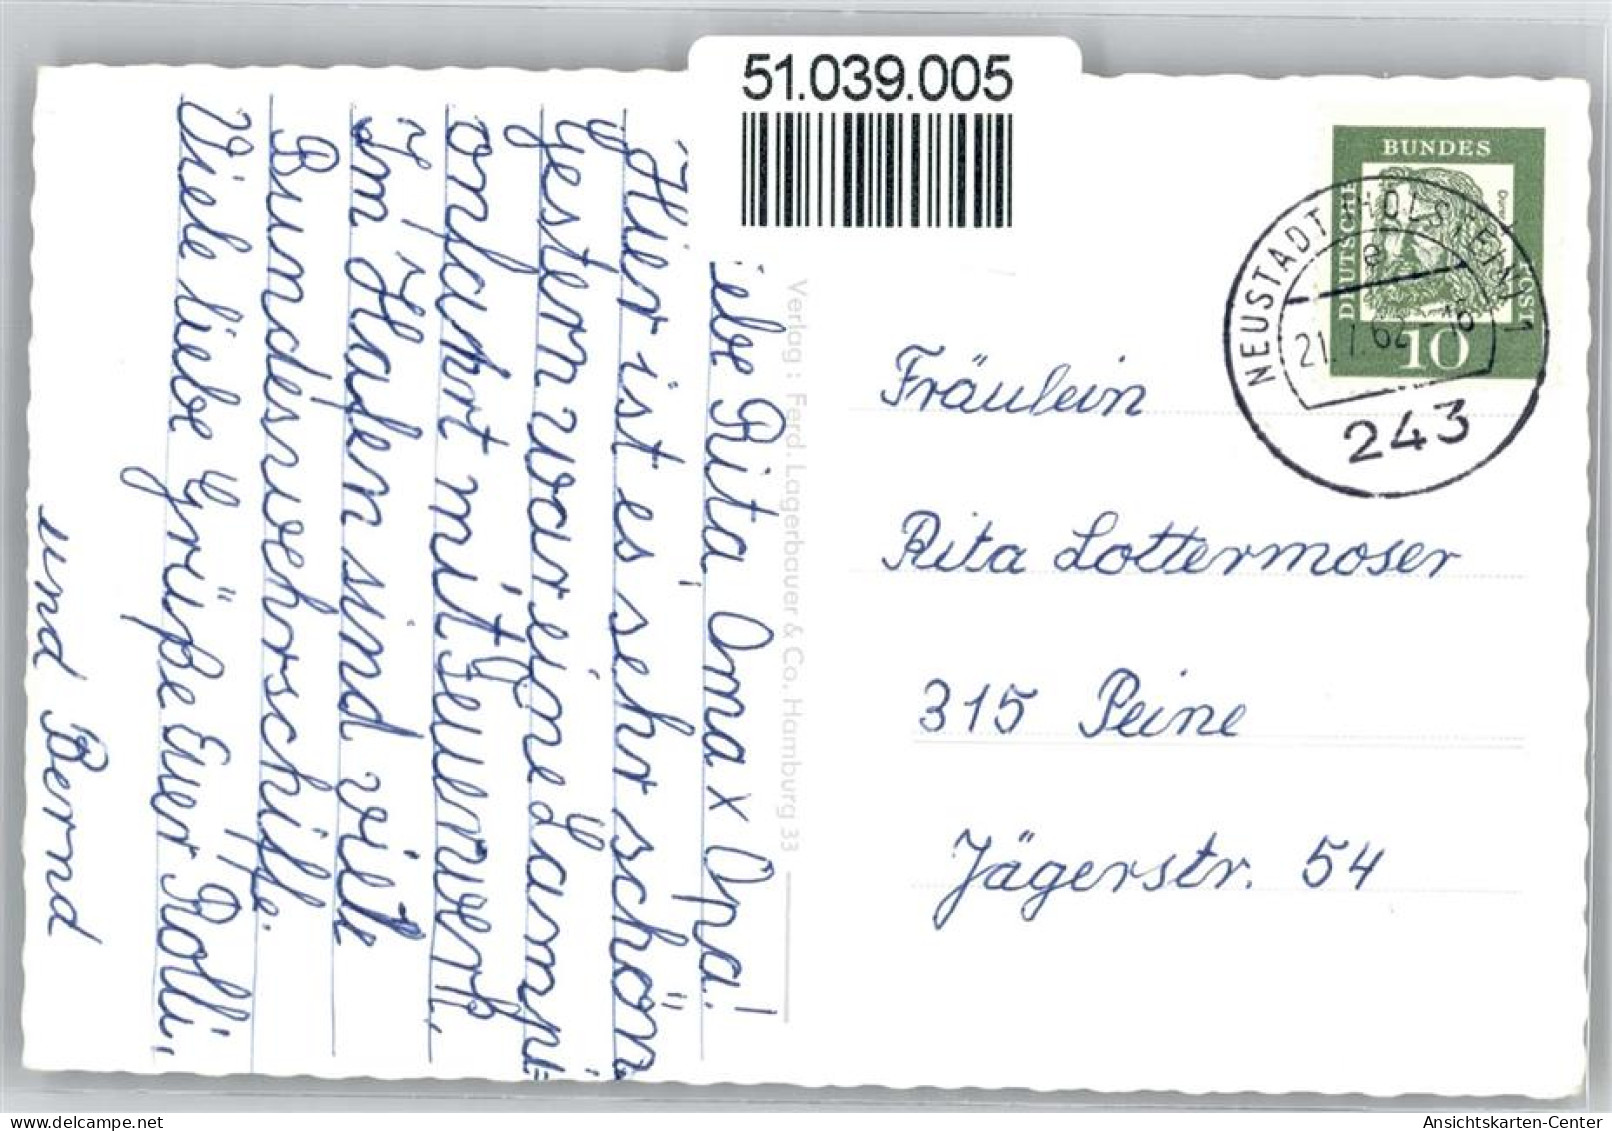 51.039.005
DEUTSCHE BUNDESPOST
10
NEUSTADT (HOLSTEIN) 1
e
21.7.62 - 16
243
Liebe Rita, Oma x Opa!
Hier ist es sehr schön
Gestern war eine Lamp=
ionfahrt mit Feuerwerk,
Im Hafen sind viele
Bundeswehrschiffe.
Viele liebe Grüße Euer Rolli,
und Bernd
Verlag: Ferd. Lagerbauer & Co, Hamburg 33
Fräulein
Rita Lottermoser
315 Peine
Jägerstr. 54
www.delcampe.net
Ansichtskarten-Center